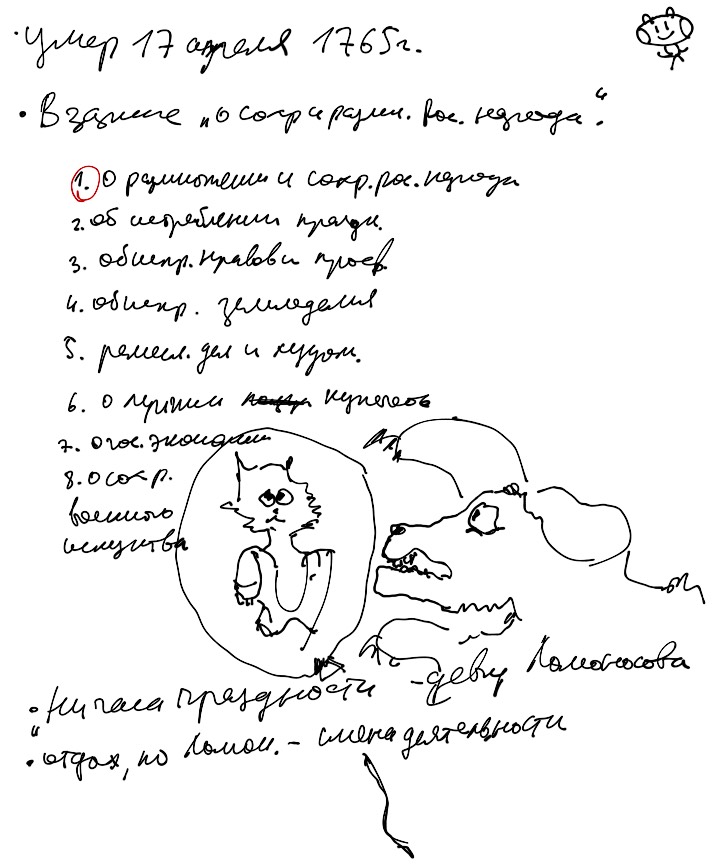 · Умер 17 апреля 1765г.
· В записке „о сохр и разм. Рос. народа“:
1. О размножении и сохр. рос. народа
2. об истреблении праздн.
3. об испр. нравов и просв.
4. об испр. земледелия
5. ремесл. дел и худож.
6. о купечеств
7. о гос. экономии
8. о сохр.
военного
искуства
· „Ни часа праздности" - девиз Ломоносова
· отдых, по Ломон. - смена деятельности